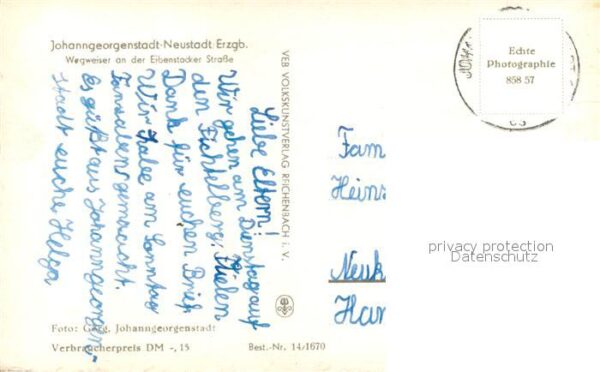 Johanngeorgenstadt-Neustadt Erzgb.
Wegweiser an der Eibenstocker Straße
Liebe Eltern!
Wir gehen am Dienstag auf
den Fichtelberg. Vielen
Dank für euchen Brief
Wir habe am Sonntag
gemacht.
Es güßt aus Johanngeorgen-
stadt euche Helga
VEB VOLKSKUNSTVERLAG REICHENBACH i. V.
Foto: Georg, Johanngeorgenstadt
Verbraucherpreis DM -,15
Best.-Nr. 14/1670
Echte
Photographie
858 57
Fam
Heins
Neuk
Har
privacy protection
Datenschutz